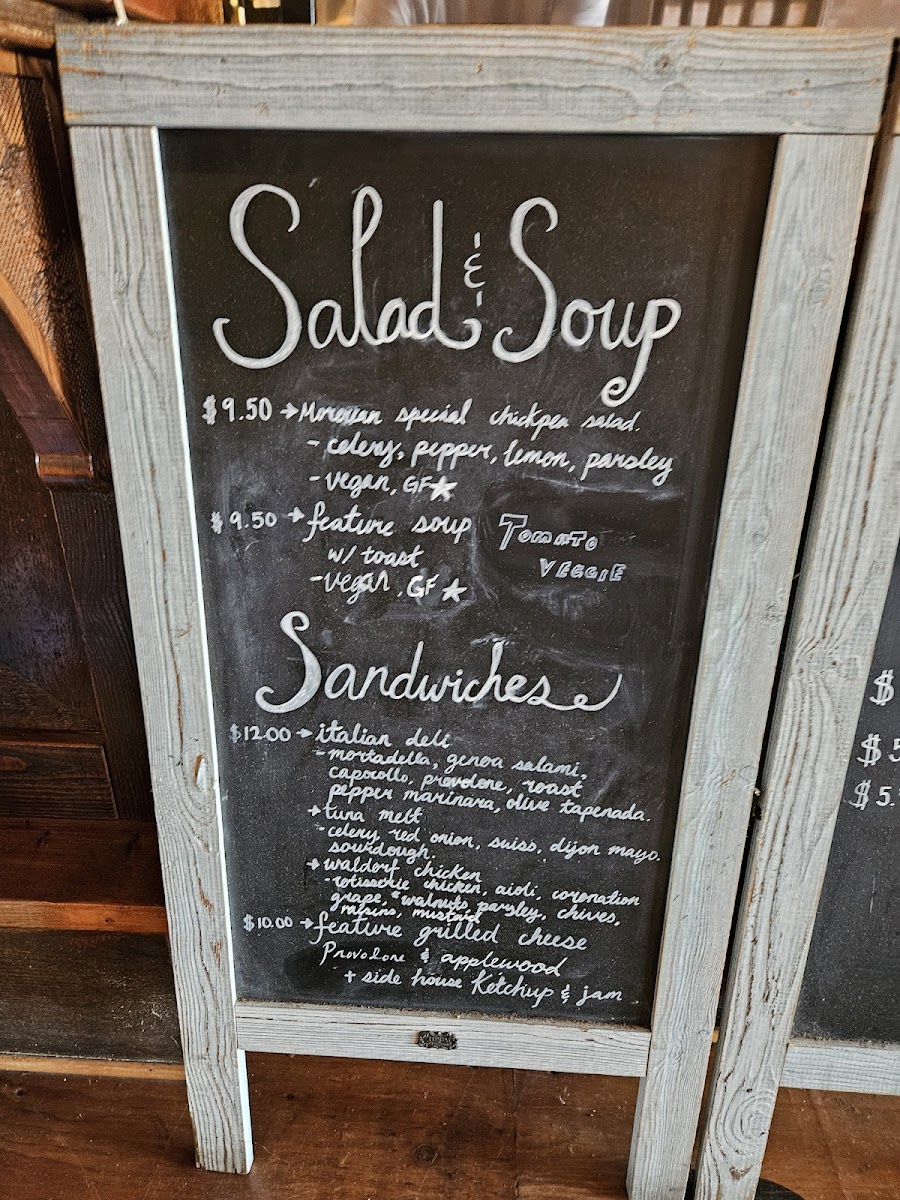 Salad & Soup
$9.50 → Morocan special chickpea salad.
- celery, pepper, lemon, parsley
- vegan, GF ★
$9.50 → feature soup TOMATO
w/ toast VEGGIE
- vegan, GF ★
Sandwiches
$12.00 → italian deli
- mortadella, genoa salami,
capocollo, provolone, roast
pepper marinara, olive tapenada.
→ tuna melt
- celery, red onion, swiss, dijon mayo.
sourdough.
→ waldorf chicken
- rotisserie chicken, aioli, coronation
grape, *walnuts, parsley, chives,
raisins, mustard
$10.00 → feature grilled cheese
Provolone & applewood
+ side house Ketchup & jam
$
$5
$5.